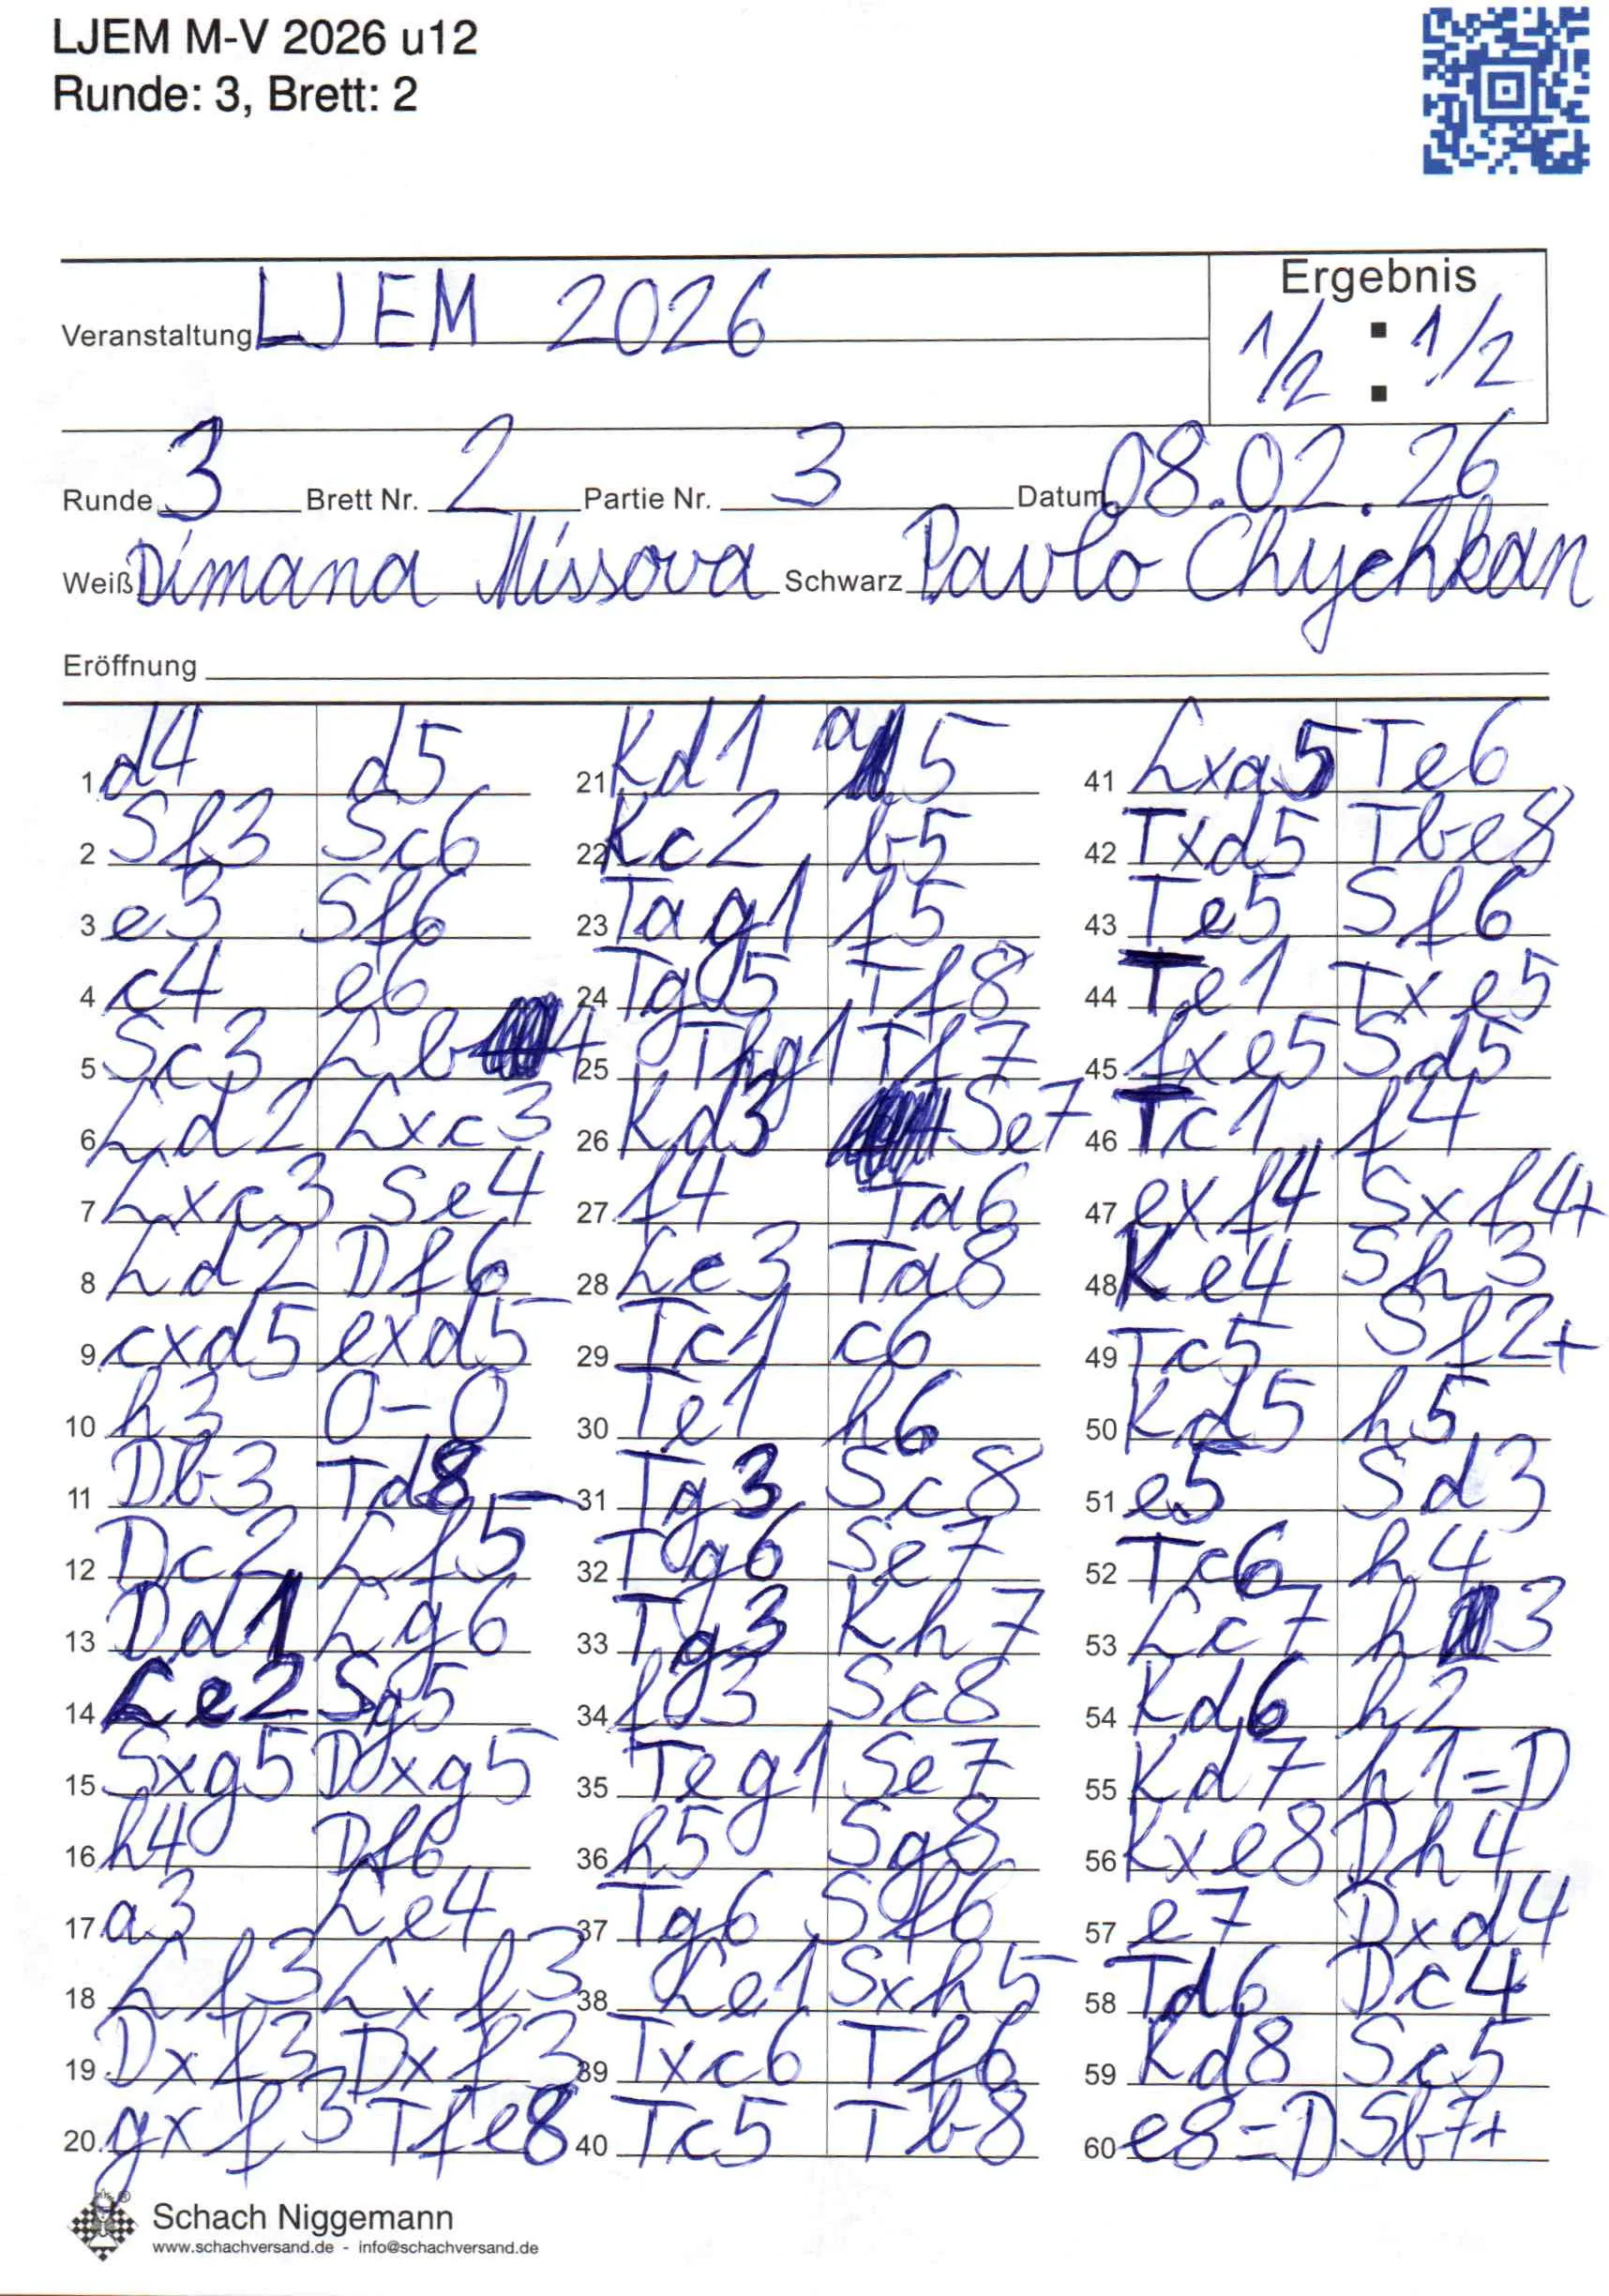 LJEM M-V 2026 u12
Runde: 3, Brett: 2
Ergebnis
Veranstaltung LJEM 2026
1/2 : 1/2
Runde 3 Brett Nr. 2 Partie Nr. 3 Datum 08.02.26
Weiß Dimana Missova Schwarz Pavlo Chychkan
Eröffnung
1 d4 d5
2 Sf3 Sc6
3 e3 Sf6
4 c4 e6
5 Sc3 Lb4
6 Ld2 Lxc3
7 Lxc3 Se4
8 Ld2 Df6
9 cxd5 exd5
10 h3 0-0
11 Db3 Td8
12 Dc2 Lf5
13 Dd1 Lg6
14 Le2 Sg5
15 Sxg5 Dxg5
16 h4 Df6
17 a3 Le4
18 Lf3 Lxf3
19 Dxf3 Dxf3
20. gxf3 Tfe8
21 Kd1 a5
22 Kc2 b5
23 Tag1 f5
24 Tg5 Tf8
25 Thg1 Tf7
26 Kd3 Se7
27 f4 Ta6
28 Lc3 Ta8
29 Tc1 c6
30 Te1 h6
31 Tg3 Sc8
32 Tg6 Se7
33 Tg3 Kh7
34 f3 Sc8
35 Teg1 Se7
36 h5 Sg8
37 Tg6 Sf6
38 Le1 Sxh5
39 Txc6 Tf6
40 Tc5 Tb8
41 Lxa5 Te6
42 Txd5 Tbe8
43 Te5 Sf6
44 Te1 Txe5
45 fxe5 Sd5
46 Tc1 f4
47 exf4 Sxf4+
48 Ke4 Sh3
49 Tc5 Sf2+
50 Kd5 h5
51 e5 Sd3
52 Tc6 h4
53 Lc7 h3
54 Kd6 h2
55 Kd7 h1=D
56 Kxe8 Dh4
57 e7 Dxd4
58 Td6 Dc4
59 Kd8 Sc5
60 e8=D Sb7+
Schach Niggemann
www.schachversand.de - info@schachversand.de